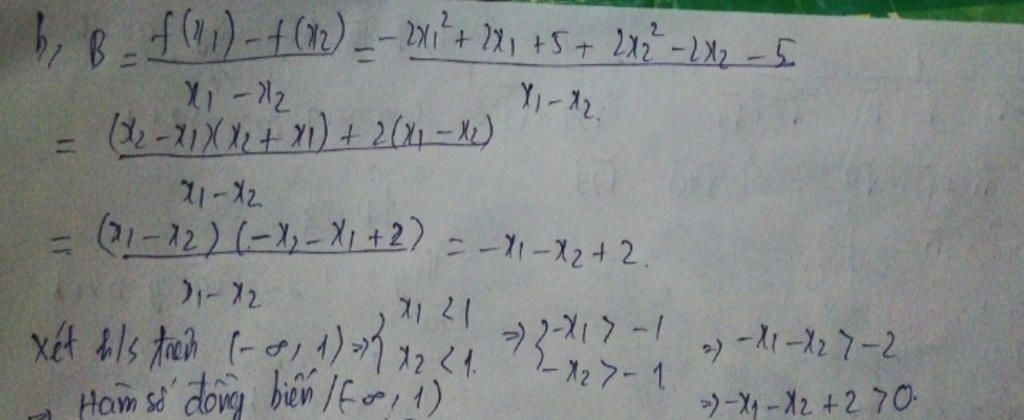 b, B = \frac{f(x_1) - f(x_2)}{x_1 - x_2} = \frac{-2x_1^2 + 2x_1 + 5 + 2x_2^2 - 2x_2 - 5}{x_1 - x_2}
= \frac{(x_2 - x_1)(x_2 + x_1) + 2(x_1 - x_2)}{x_1 - x_2}
= \frac{(x_1 - x_2)(-x_2 - x_1 + 2)}{x_1 - x_2} = -x_1 - x_2 + 2.
Xét h/s trên (-∞, 1) => { x_1 < 1 x_2 < 1. => { -x_1 > -1 -x_2 > -1. => -x_1 - x_2 > -2
=> Hàm số đồng biến /(-∞, 1) => -x_1 - x_2 + 2 > 0.